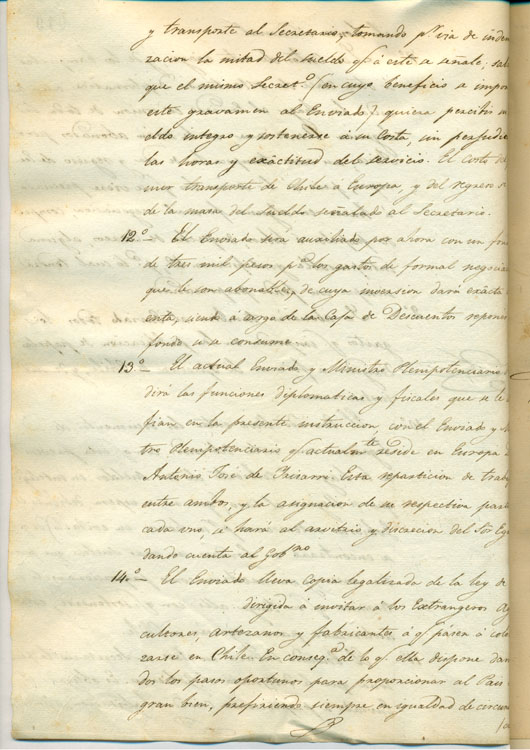 y transporte al Secretario, tomando pr via de indem
zacion la mitad del sueldo qe á este se señale; sal
que el mismo Secreto (en cuyo beneficio se impo
este gravamen al Enviado) quiera percibir su
eldo integro y sostenerse á su costa, sin perjudic
las horas y exactitud del servicio. El costo del
mer transporte de Chile a Europa, y del regreso s
de la masa del sueldo señalado al Secretario.
12.º— El Enviado sera auxiliado por ahora con un fon
de tres mil pesos pa los gastos de formal negocia
que le son abonables, de cuya inversion dará exacta
enta, siendo á cargo de la Caja de Descuentos reponer
fondo si se consume.
13.º— El actual Enviado y Ministro Plenipotenciario
dirá las funciones diplomaticas y fiscales que se le
fian en la presente instruccion, con el Enviado y M
tro Plenipotenciario qe actualmte reside en Europa D
Antonio José de Irisarri. Esta reparticion de trab
entre ambos, y la asignacion de su respectiva parte
cada uno, se hará al arvitrio y discrecion del Sor Ega
dando cuenta al Gobno
14.º— El Enviado lleva copia legalizada de la ley de
dirigida á invitar á los Extrangeros Ag
cultores, artezanos y fabricantes, á qe pásen á colo
zarse en Chile. En conseqa de lo qe ella dispone dará
dos los pasos oportunos para proporcionar al Pais
gran bien, prefiriendo siempre en igualdad de circun